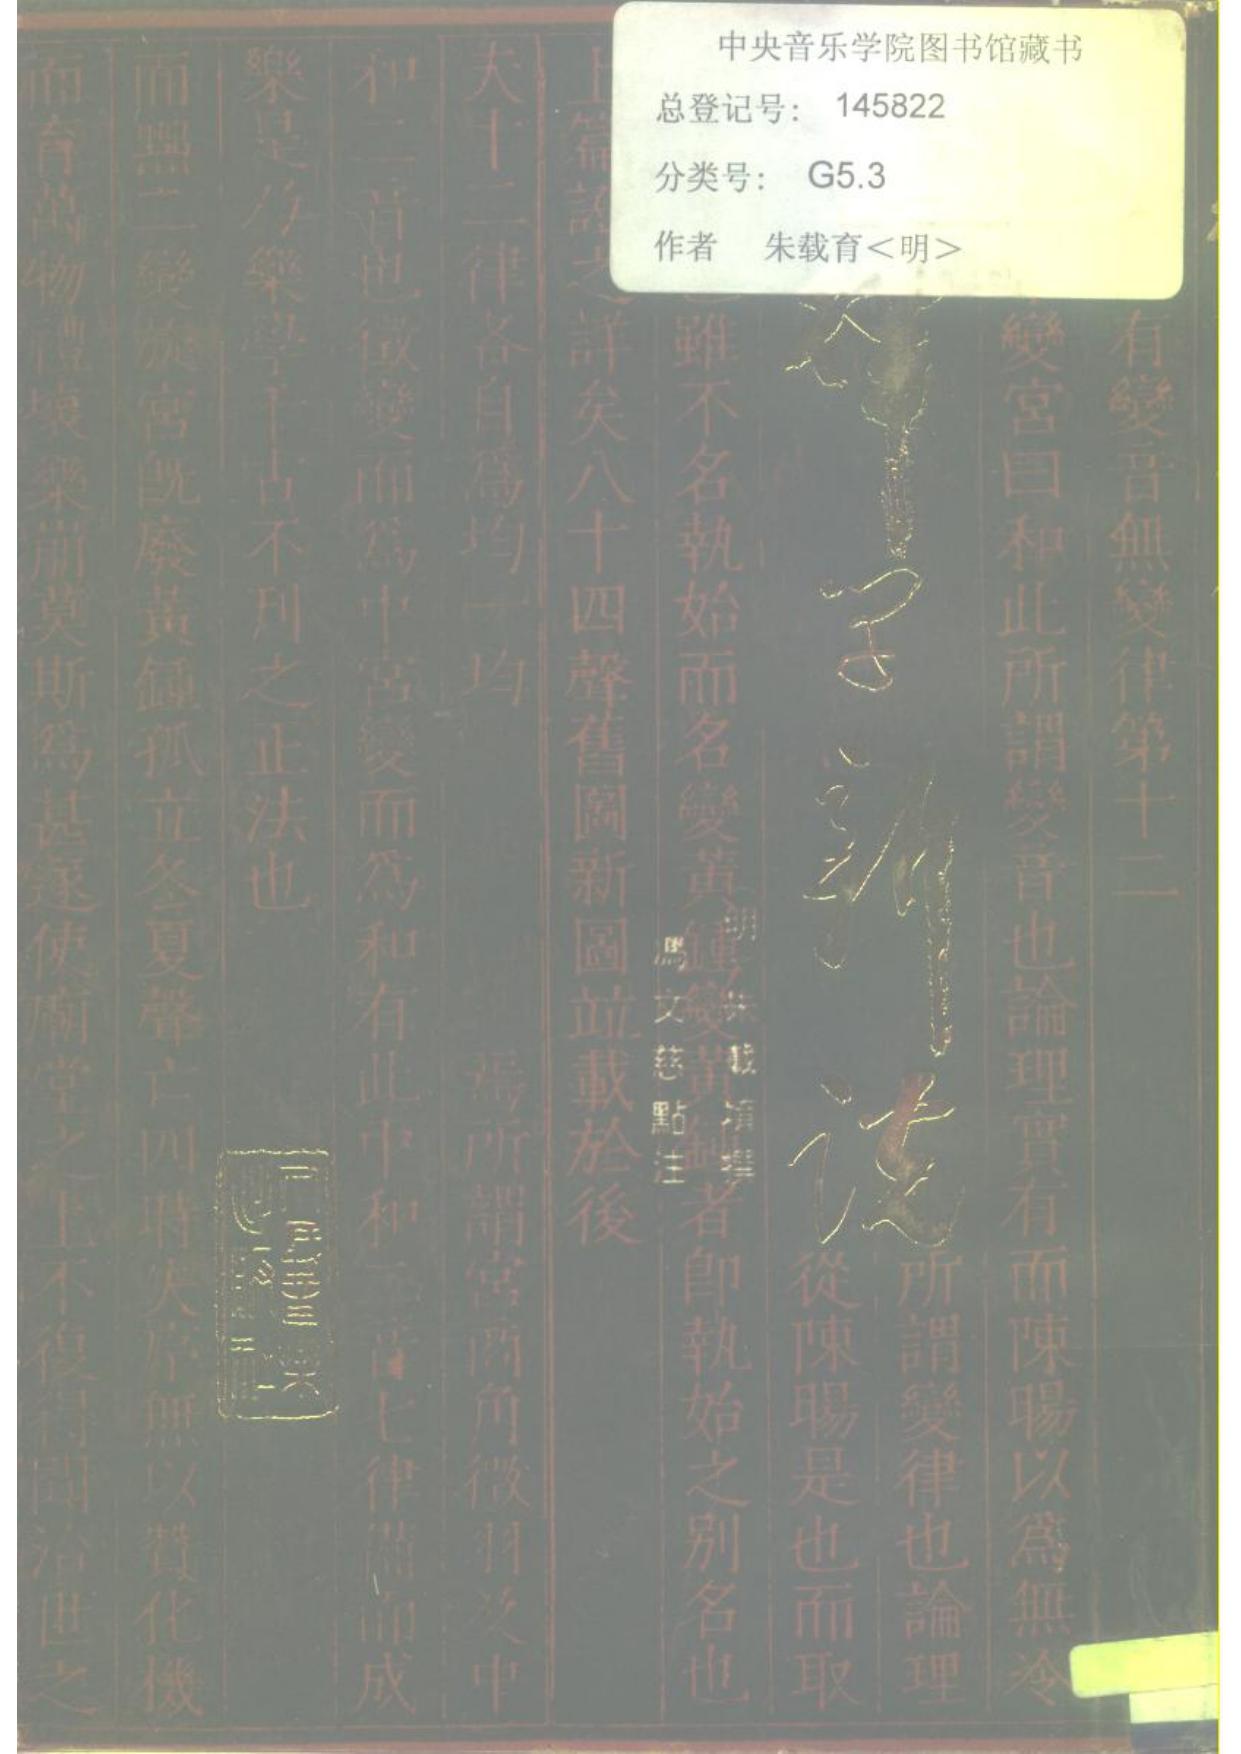 中央音乐学院图书馆藏书
总登记号: 145822
分类号: G5.3
作者 朱载育<明>
律学新说
明 朱載堉撰
馮文慈點注
人民音樂出版社
有變音無變律第十二
變宮曰和此所謂變音也論理實有而陳暘以為無冷
所謂變律也論理
從陳暘是也而取
也雖不名執始而名變黃鍾變黃鍾者即執始之別名也
上篇說之詳矣八十四聲舊圖新圖竝載於後
夫十二律各自為均一均 焉所謂宮商角徵羽及中
和二音也徵變而為中宮變而為和有此中和二音七律備而成
樂是乃樂學千古不刊之正法也
而黑二變旋宮既廢黃鍾孤立冬夏聲亡四時失序無以贊化機
而育萬物禮壞樂崩莫斯為甚遂使廟堂之上不復得聞治世之